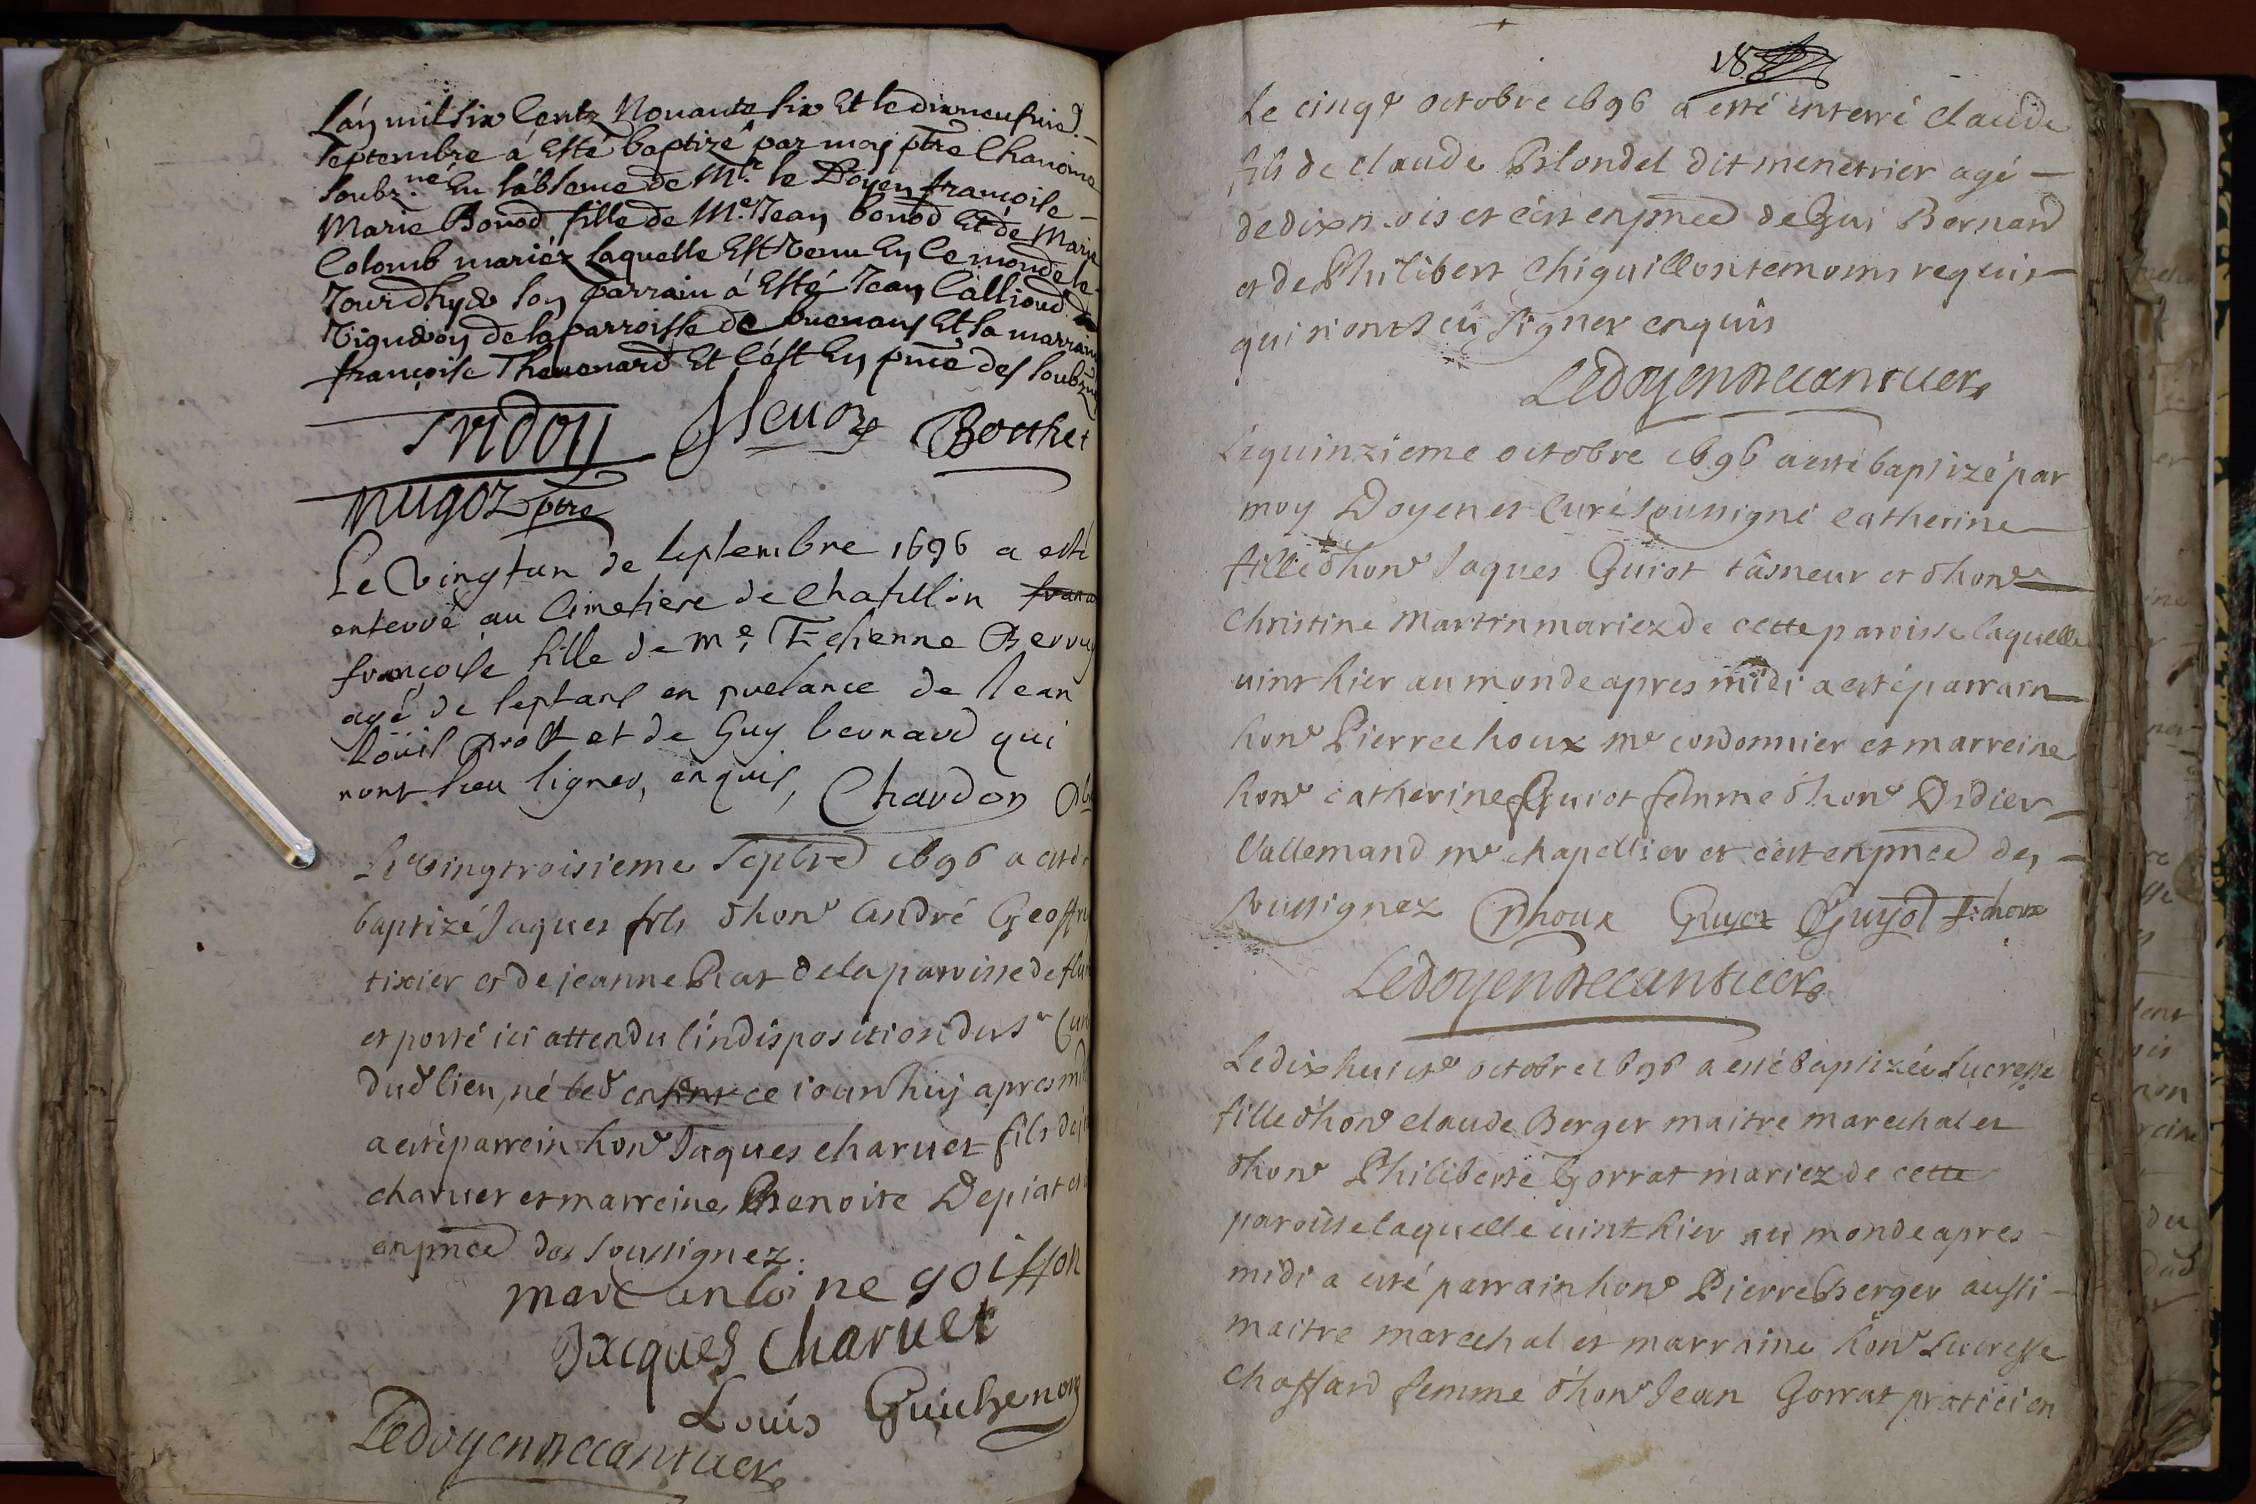 L'an mil six Centz Nouante six Et le dixneufuie.
septembre à Esté baptizé par moy ptre Chanoine
soubz.né En labsence de Mr. le Doyen françoise
Marie Bouod fille de Me. Jean bouod Et de Marie
Colomb mariéz laquelle Est Venu En Ce monde le
Jourdhyer son parrain à Esté Jean Callioud
Vigneron de la parroisse de buenans Et la marrain
françoise Theuenard Et C'est En pnce des soubz
Bouchet
ptre
Le Vingtun de septembre 1696 a esté
enterré au Cimetiere de Chatillon
françoise fille de me. Estienne
agé de septans en presance de Jean
Loüis et de Guy bernard qui
n'ont sceu signer, enquis, Chardon
Le vingtroisieme Septbre 1696 a esté
baptizé Jaques fils d'hone André Geoffray
tixier et de jeanne Piat de la paroisse de
et porté ici attendu l'indisposition du sr Curé
dud lieu, né led ce iourdhuy apres midi
a esté parrein hone Jaques charuet fils de
charuet et marreine Benoite Depiat et
en pnce des soussignez.
marc antoine goiffon
Jacques Charuet
Louis Guichenon
Ledoyen
Le cinqe octobre 1696 a esté enterré claude
fils de claude Blondel dit menetrier agé
de dix mois et c'est en pnce de Gui Bernard
et de Philibert Chiguillon temoins requis
qui n'ont sceü signer enquis
Ledoyen
Le quinzieme octobre 1696 a esté baptizé par
moy Doyen et Curé soussigné Catherine
fille d'hone Jaques Guiot tâsneur et d'hone
Christine Martin mariez de cette paroisse laquelle
uint hier au monde apres midi a esté parrain
hone Pierre choux me cordonnier et marreine
hone catherine Guiot femme d'hone Didier
Vallemand me chapellier et c'est en pnce des
soussignez Choux Guyot Guyot
Ledoyen
Le dix huicte octobre 1696 a esté baptizée Lucresse
fille d'hone claude Berger maitre marechal et
d'hone Philiberte Gorrat mariez de cette
paroisse laquelle uint hier au monde apres
midi a esté parrain hone Pierre Berger aussi
maitre marechal et marraine hone Lucresse
Chaffard femme d'hone Jean Gorrat praticien